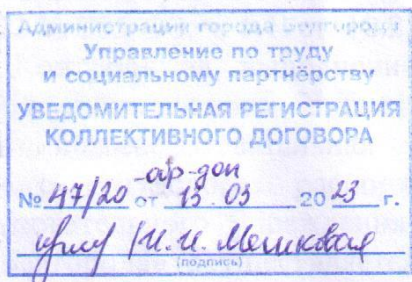 Администрация города Белгорода
Управление по труду
и социальному партнёрству
УВЕДОМИТЕЛЬНАЯ РЕГИСТРАЦИЯ
КОЛЛЕКТИВНОГО ДОГОВОРА
№ 47/20 -ар-доп от 13.03 2023 г.
И.И. Мешковая
(подпись)